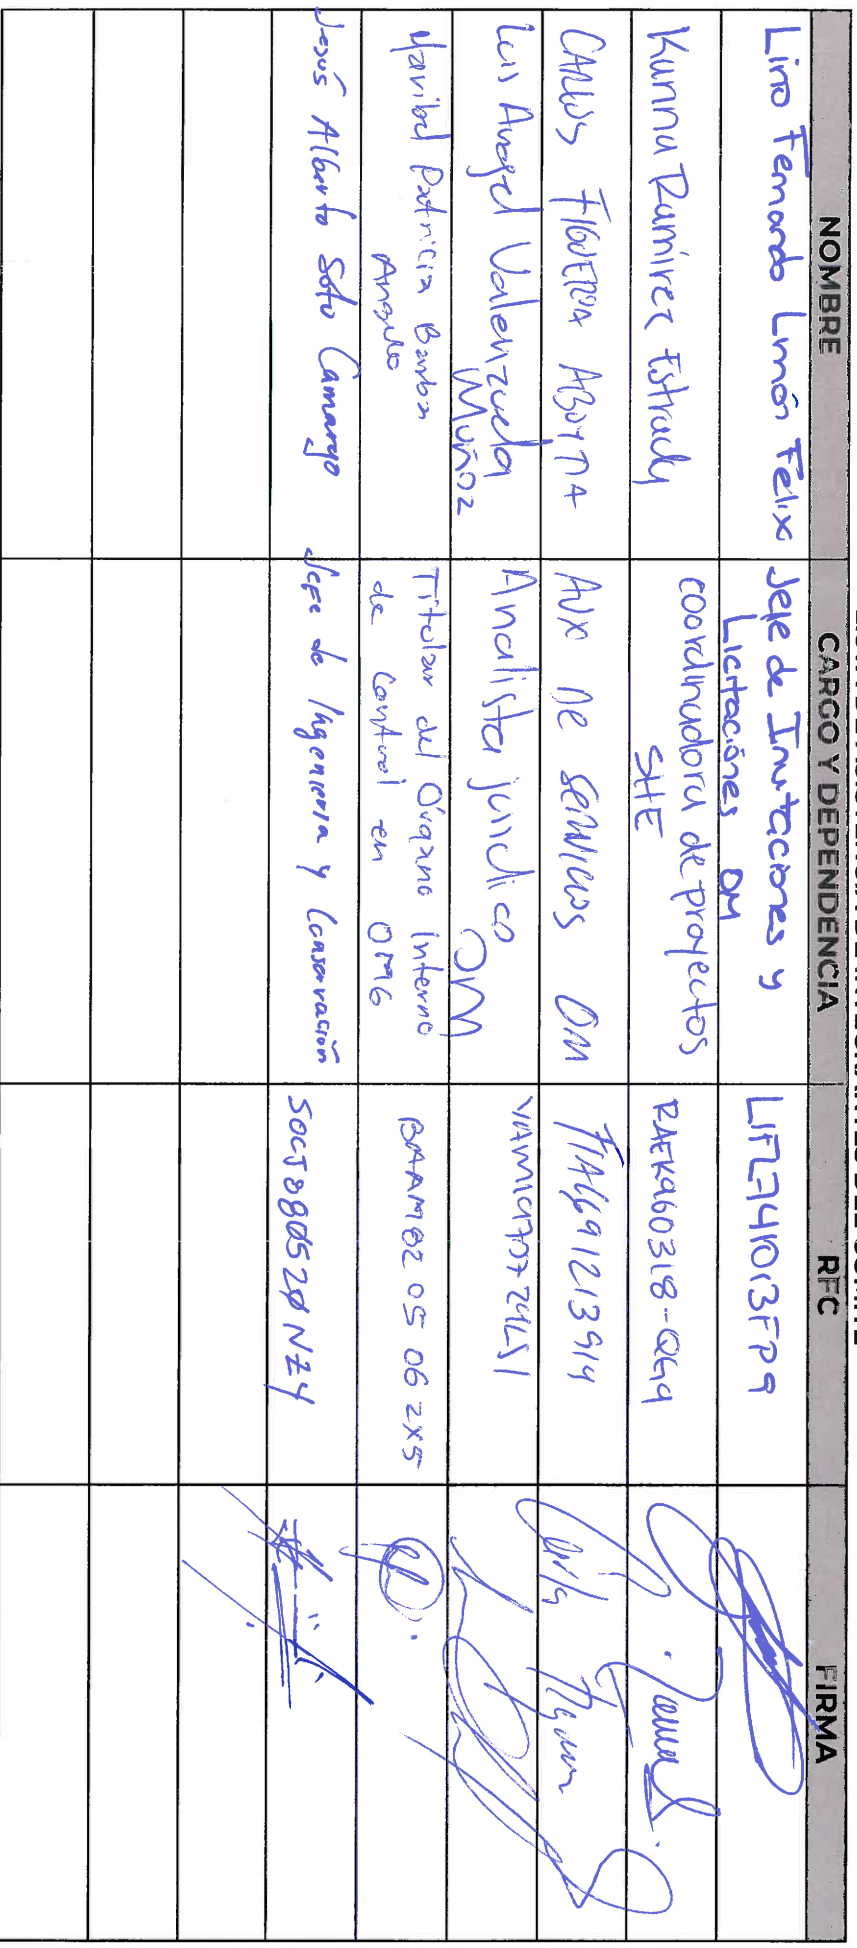 NOMBRE CARGO Y DEPENDENCIA RFC FIRMA
Lino Fernando Limón Félix Jefe de Invitaciones y
Licitaciónes OM
LIFL741013FP9
Karina Ramírez Estrada coordinadora de proyectos
SHE
RAEK960318-QG9
CARLOS FIGUEROA ABOYTIA AUX DE SERVICIOS OM
Luis Angel Valenzuela
Muñoz
Analista juridico
OM
Maribel Patricia Barba
Angulo
Titular del Órgano Interno
de Control en OMG
BAAM8205062X5
Jesús Alberto Soto Camargo Jefe de Ingenieria y Conservación SOCJ880520NZ4